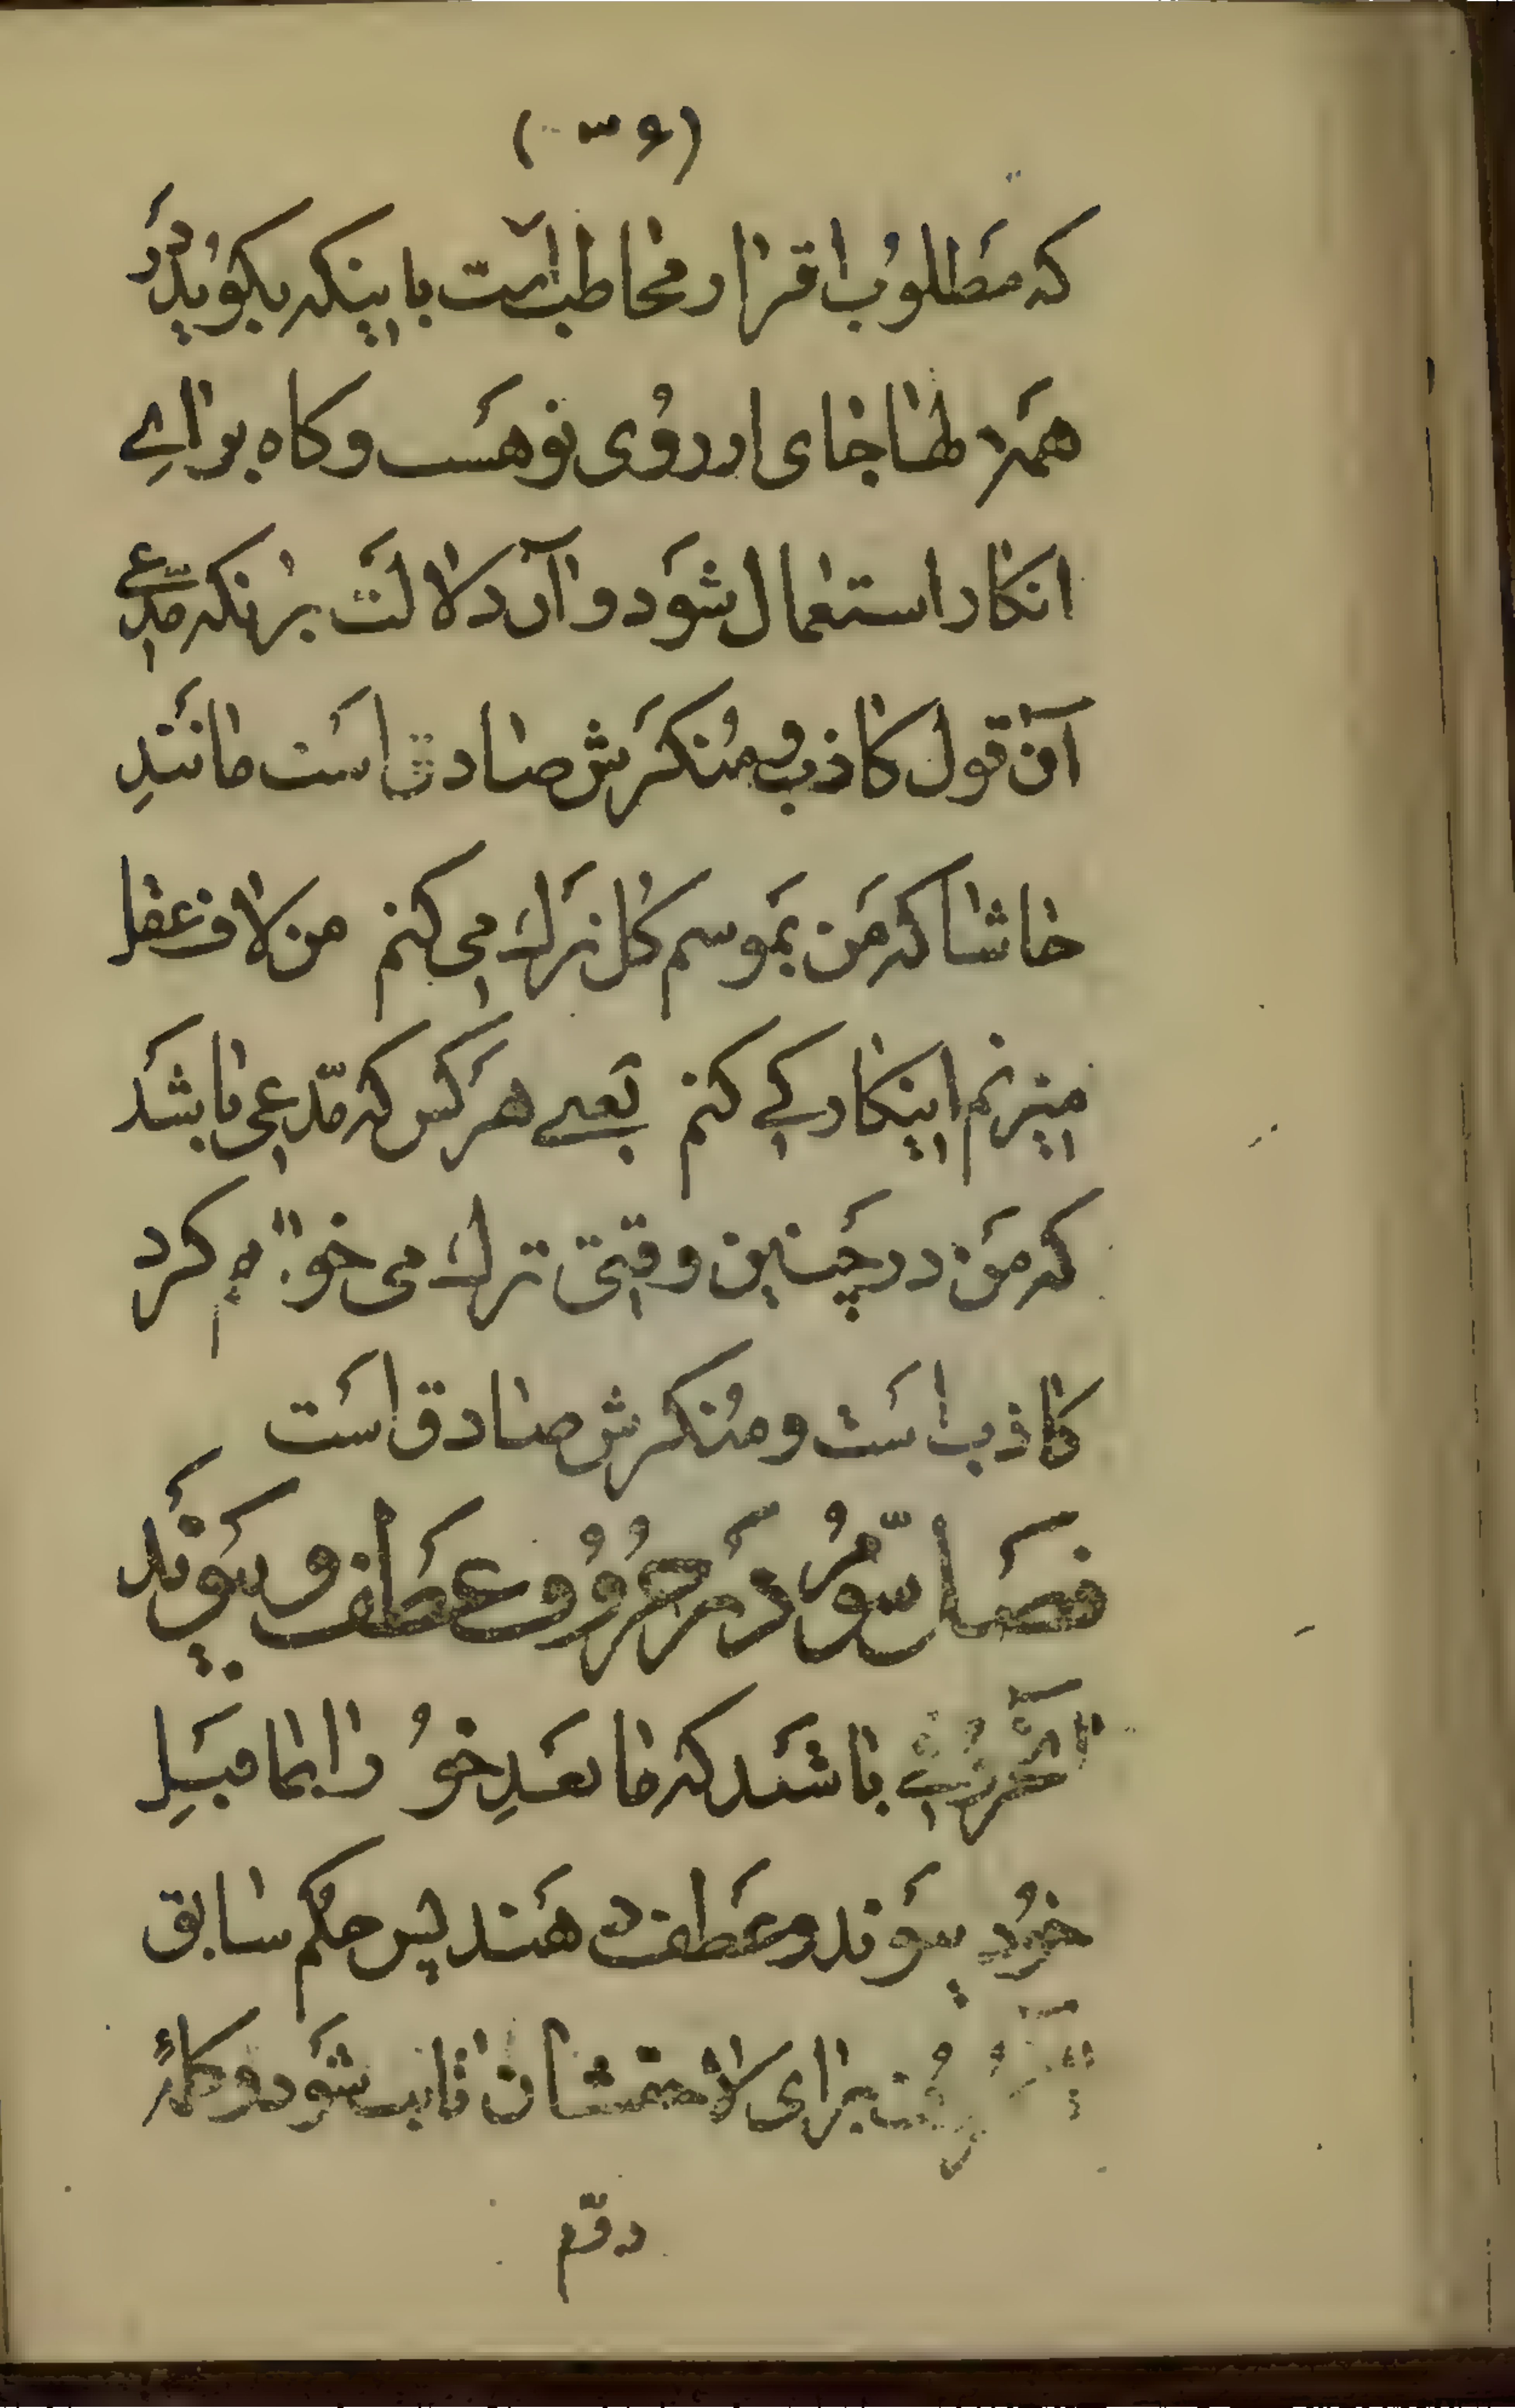 که مطلوب اقرار مخاطب است باینکه بکوید در
همه دلها جای ارزوی تو هست وکاه برای
انکار استعمال شود وآن دلالت برانکه مدّعی
آن قول کاذب ومُنکَرش صادق است مانندِ
حاشا که من بموسم کُل ترک می کنم من لاف عقل
میزنم اینکار کی کنم یعنی هرکس که مدّعی باشد
که من در چنین وقتی ترک می خواهم کرد
کاذب است ومُنکرش صادق است
فصل سوّم در حروف عطف و پیوند
باشند که ما بعدِ خود را بما قبلِ
خود پیوند وعطف دهند پس حکم سابق
برای لاحقشان ثابت شود وکلمهٔ
دوّم